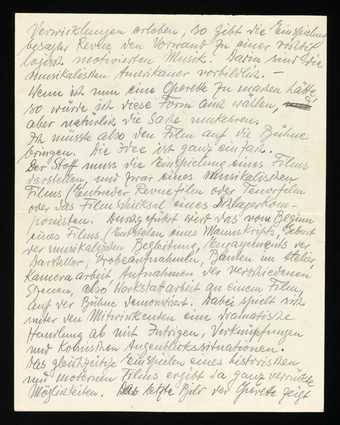 Verwicklungen erleben, so gibt die Einspielung
besagter Revue den Vorwand zu einer wirklich
logisch motivierten Musik. Darin sind die
musikalischen Amerikaner vorbildlich. –
Wenn ich nun eine Operette zu machen hätte,
so würde ich diese Form auch wählen,
aber natürlich die Sache umkehren.
Ich müsste also den Film auf die Bühne
bringen. Die Idee ist ganz einfach.
Der Stoff muss die Einspielung eines Films
darstellen, und zwar eines musikalischen
Films (Entweder Revuefilm oder Tenorfilm
oder das Filmschicksal eines Schlagerkom-
ponisten. Durchgeführt wird das vom Beginn
eines Films (Entstehen eines Manuskripts, Geburt
der musikalischen Begleitung, Engagements der
Darsteller, Probeaufnahmen, Bauten im Atelier,
Kameraarbeit Aufnahmen der verschiedenen
Szenen, also Werkstattarbeit an einem Film,
auf der Bühne demonstriert. Dabei spielt sich
unter den Mitwirkenden eine dramatische
Handlung ab mit Intrigen, Verknüpfungen
und komischen Augenblickssituationen.
Das gleichzeitige Einspielen eines historischen
und modernen Films ergibt da ganz verrückte
Möglichkeiten. Das letzte Bild der Operette zeigt